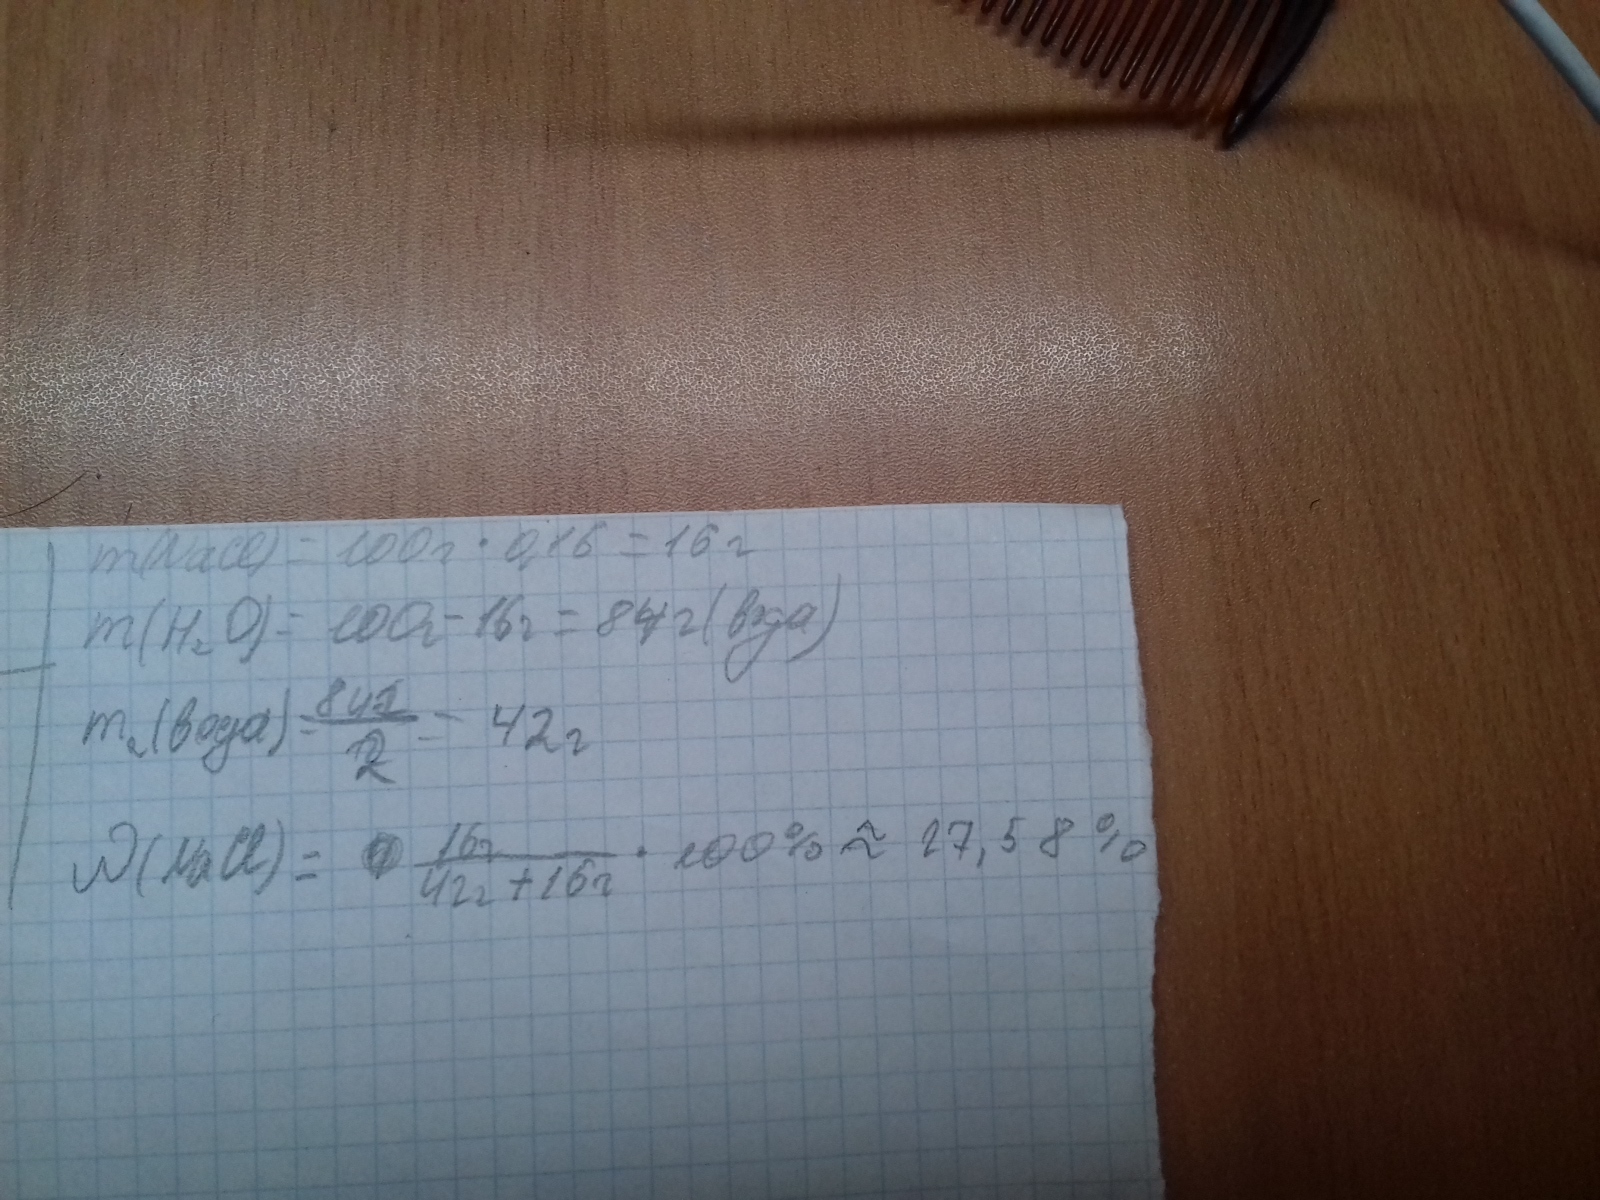 m(NaCl) = 100г · 0,16 = 16г
m(H₂O) = 100г - 16г = 84г (вода)
m₂(вода) = 84г/2 = 42г
W(NaCl) = 16г/(42г + 16г) · 100% ≈ 27,58%